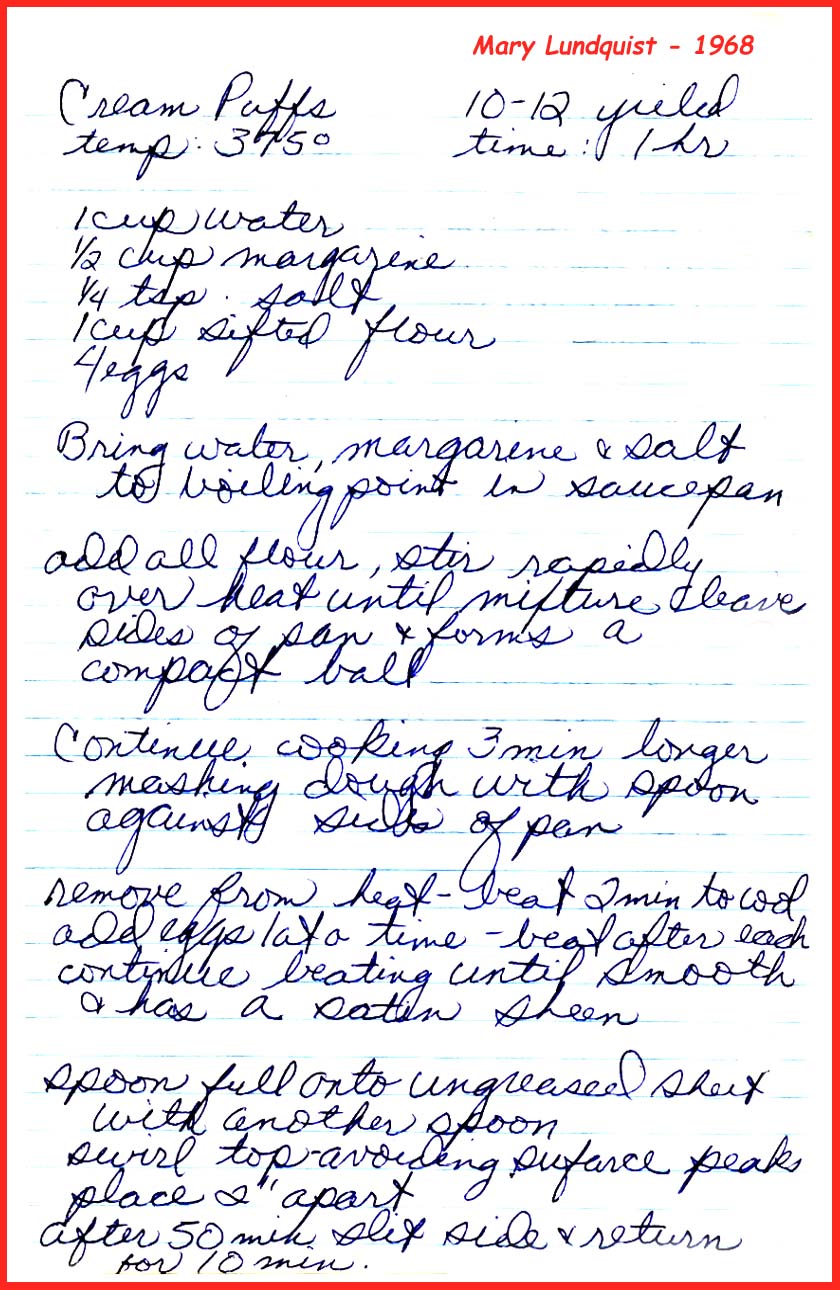 Mary Lundquist - 1968
Cream Puffs 10-12 yield
temp: 375° time: 1 hr
1 cup water
1/2 cup margarine
1/4 tsp. salt
1 cup sifted flour
4 eggs
Bring water, margarene & salt
to boiling point in saucepan
add all flour, stir rapidly
over heat until mixture leave
sides of pan & forms a
compact ball
Continue cooking 3 min longer
mashing dough with spoon
against sides of pan
remove from heat - beat 2 min to cool
add eggs 1 at a time - beat after each
continue beating until smooth
& has a satin sheen
spoon full onto ungreased sheet
with another spoon
swirl top - avoiding sufarce peaks
place 2" apart
after 50 min slit side & return
for 10 min.